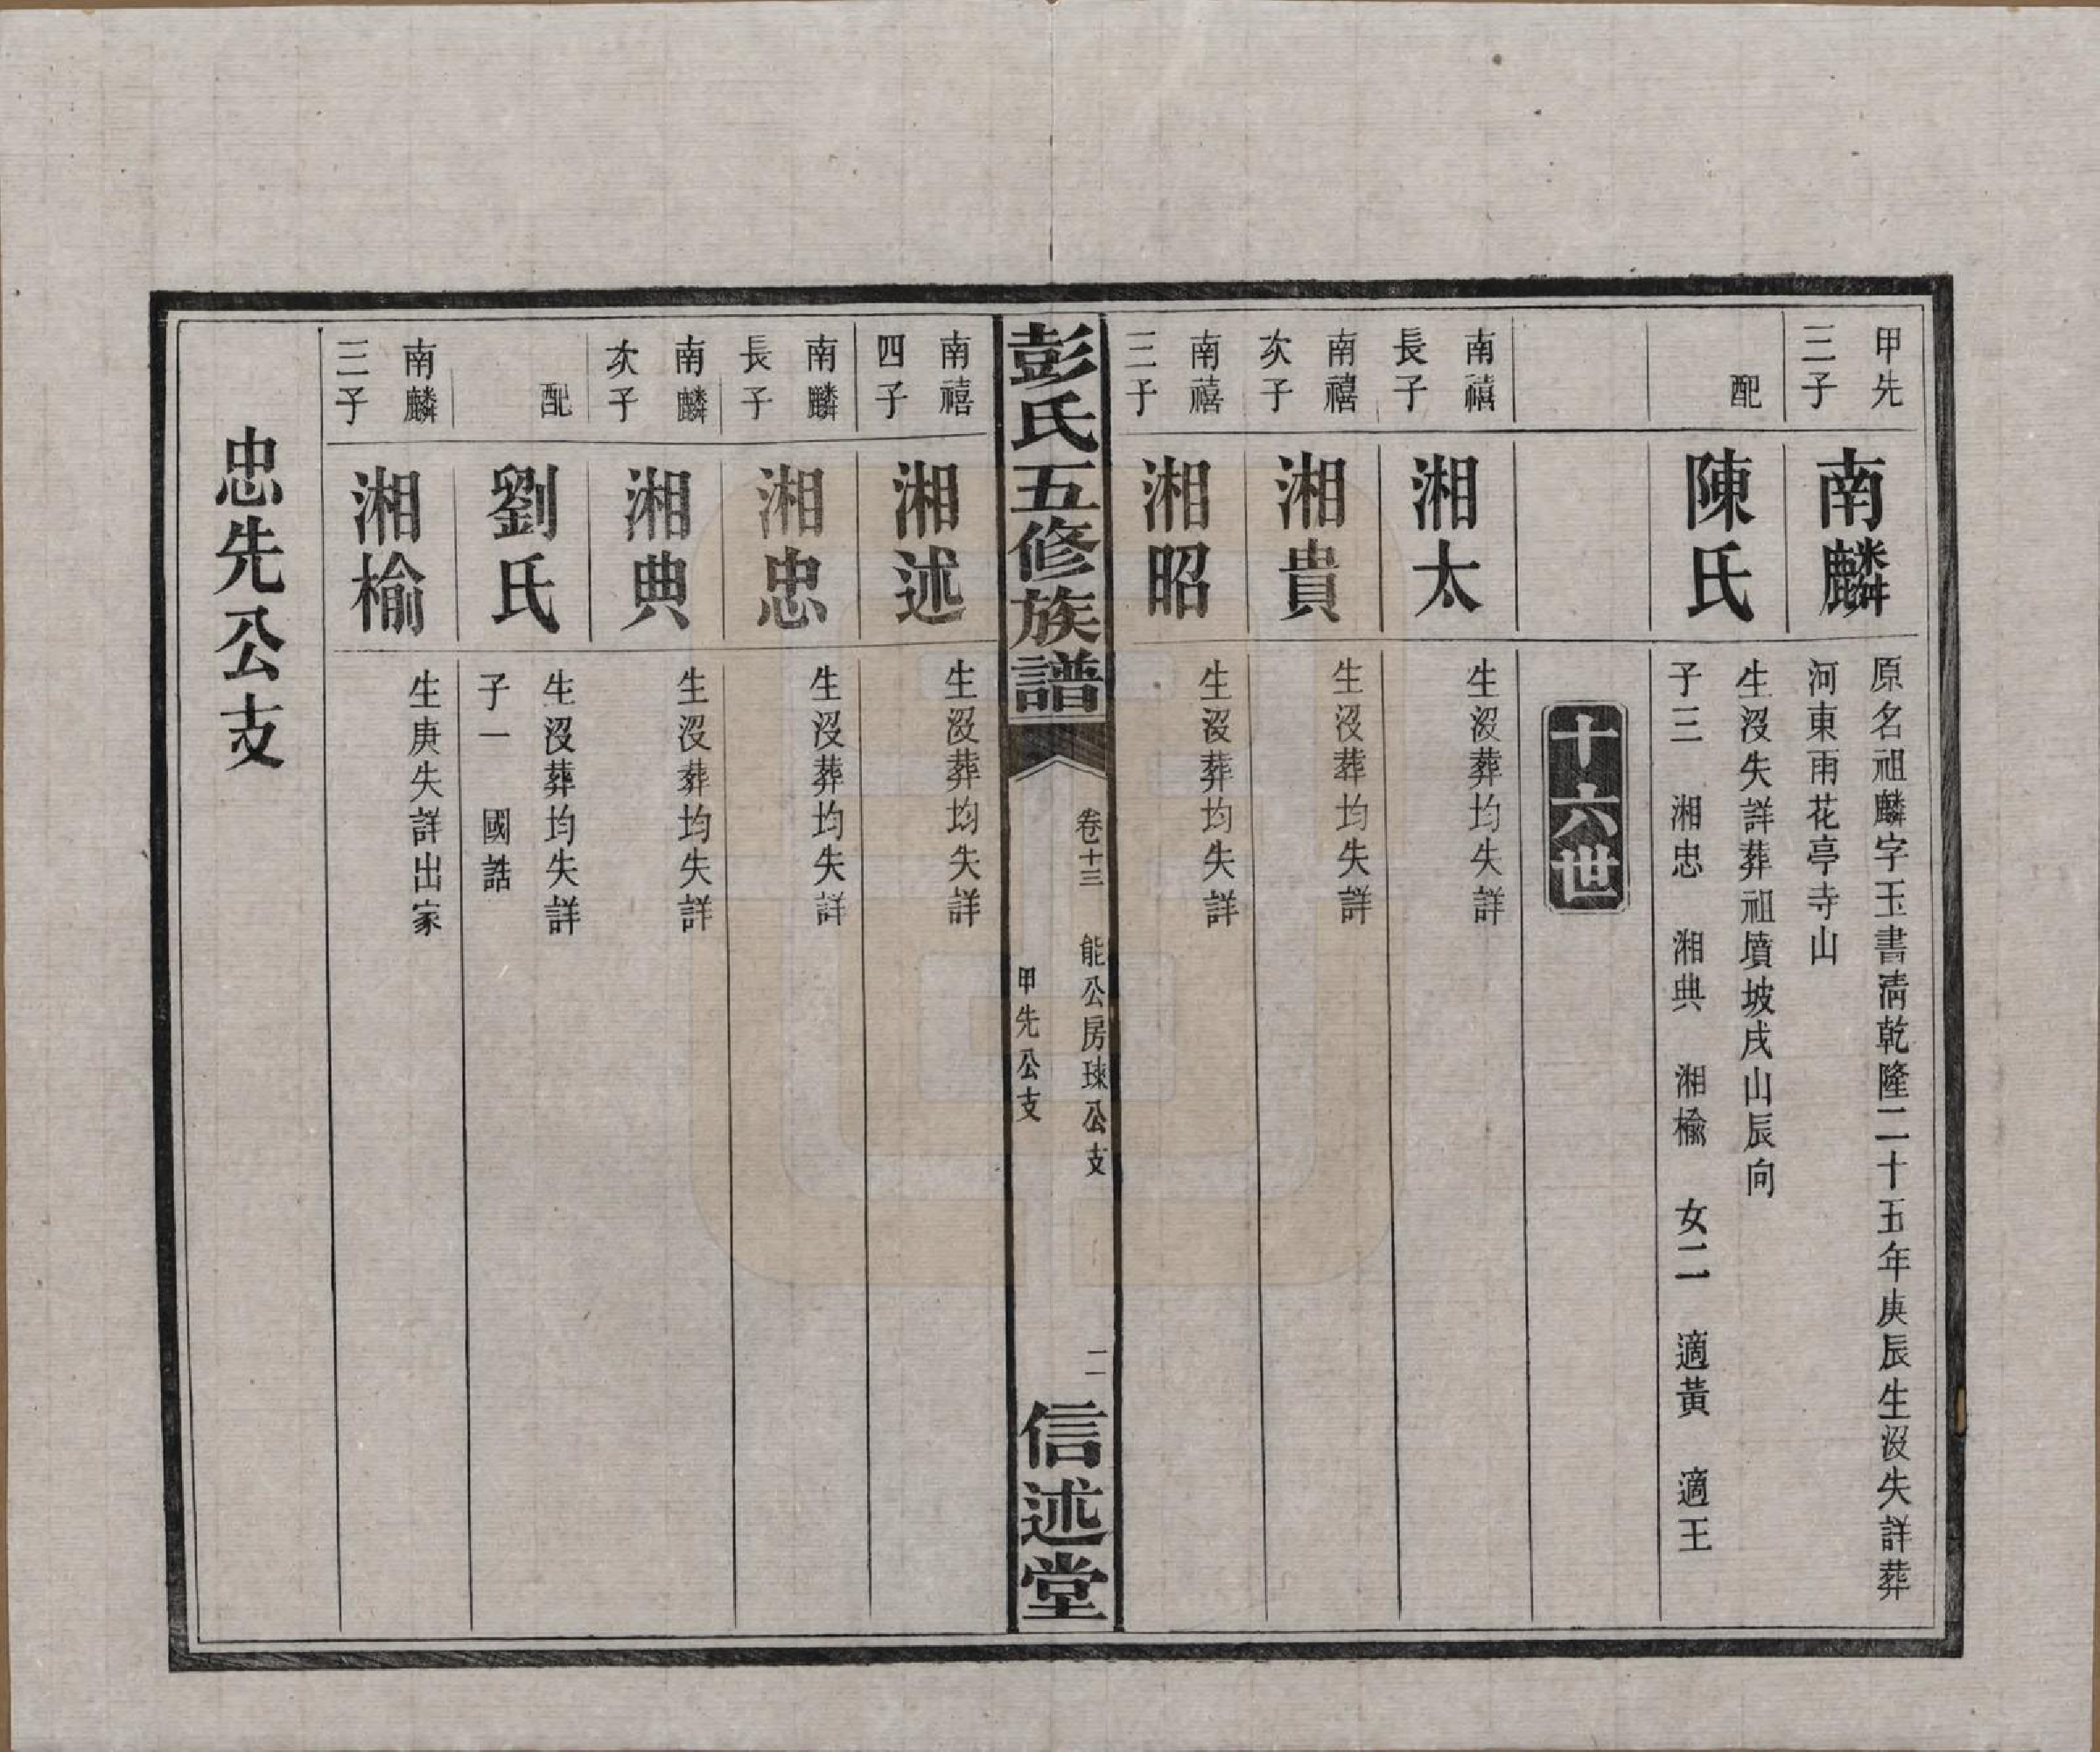 甲先
三子
南麟
原名祖麟字玉書清乾隆二十五年庚辰生沒失詳葬
河東雨花亭寺山
配
陳氏
生沒失詳葬祖墳坡戌山辰向
子三 湘忠 湘典 湘榆 女二 適黃 適王
十六世
南禧
長子
湘太
生沒葬均失詳
南禧
次子
湘貴
生沒葬均失詳
南禧
三子
湘昭
生沒葬均失詳
彭氏五修族譜
卷十三 能公房琜公支
甲先公支
二
信述堂
南禧
四子
湘述
生沒葬均失詳
南麟
長子
湘忠
生沒葬均失詳
南麟
次子
湘典
生沒葬均失詳
配
劉氏
生沒葬均失詳
子一 國誥
南麟
三子
湘榆
生庚失詳出家
忠先公支